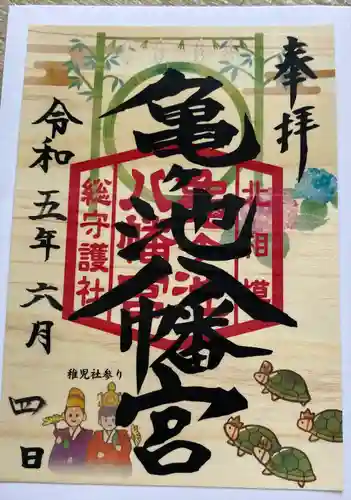 奉拝
亀ヶ池八幡宮
北相模
亀ヶ池
八幡宮
総守護社
令和五年六月
四日
稚児社参り